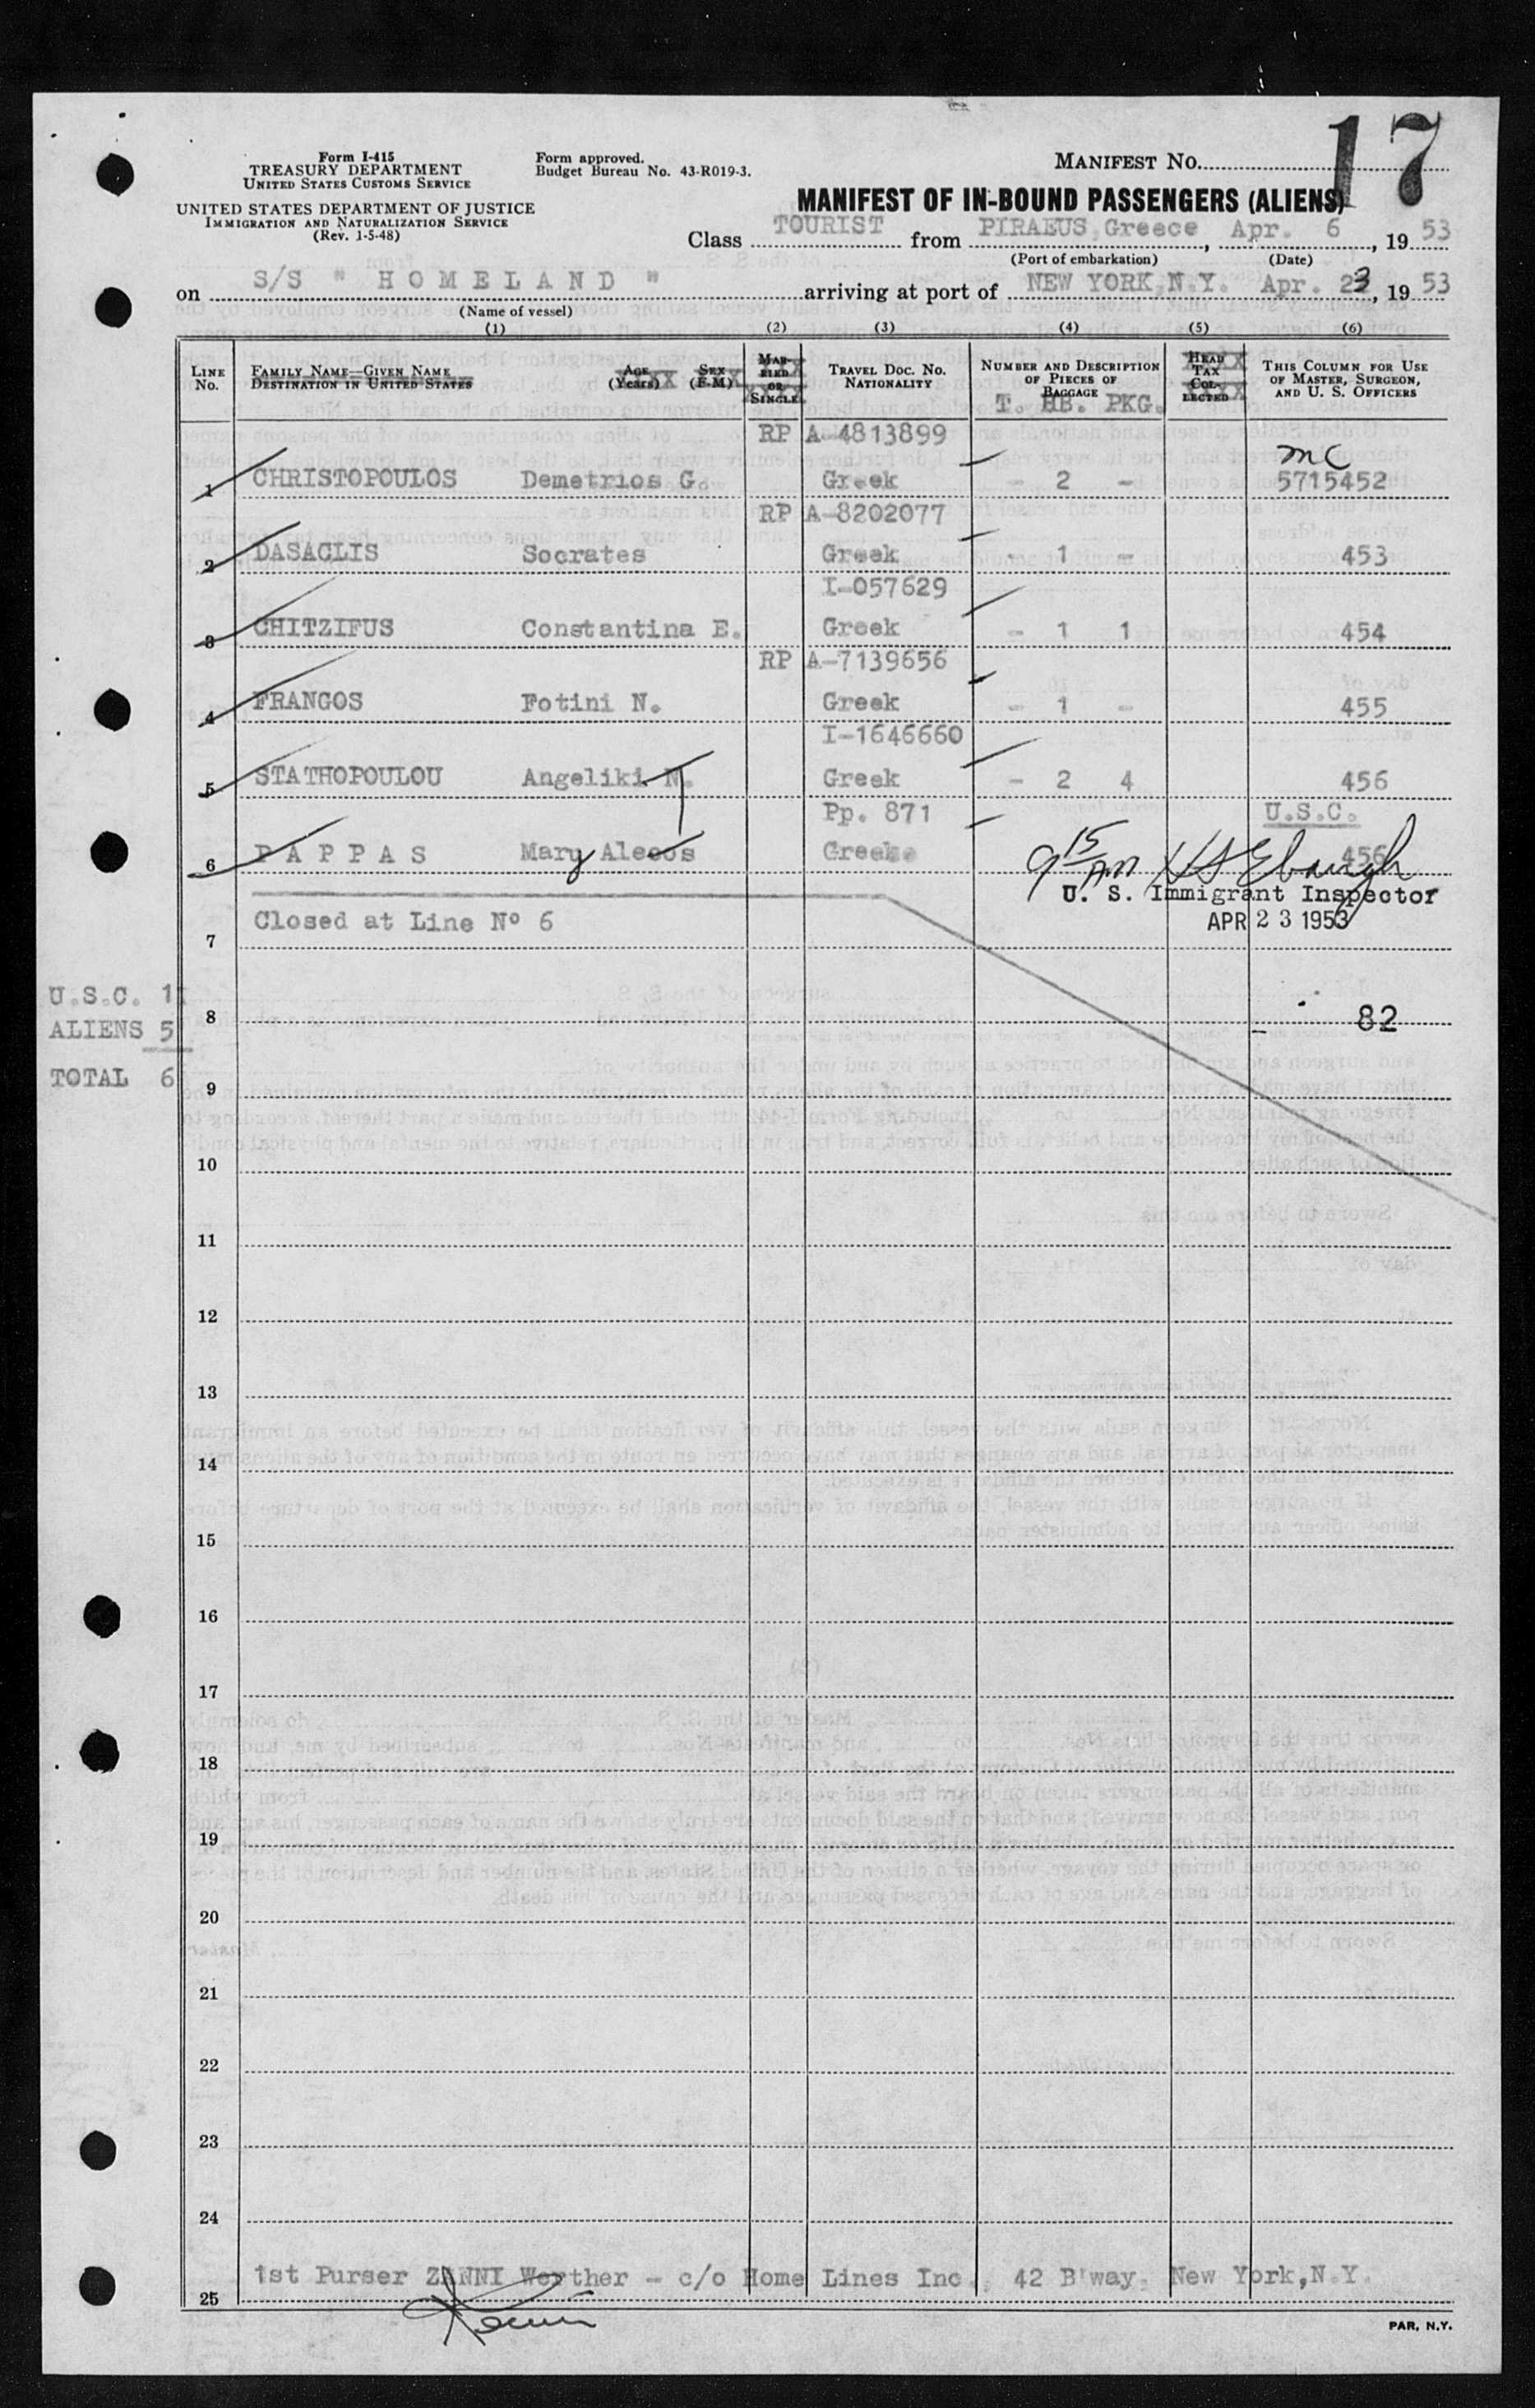 17
Form I-415
TREASURY DEPARTMENT
UNITED STATES CUSTOMS SERVICE
UNITED STATES DEPARTMENT OF JUSTICE
IMMIGRATION AND NATURALIZATION SERVICE
(Rev. 1-5-48)
Form approved.
Budget Bureau No. 43-R019-3.
MANIFEST NO.
MANIFEST OF IN-BOUND PASSENGERS (ALIENS)
Class TOURIST from PIRAEUS, Greece, Apr. 6, 1953
(Port of embarkation) (Date)
on S/S " HOMELAND " arriving at port of NEW YORK, N.Y. Apr. 23, 1953
(Name of vessel)
(1) (2) (3) (4) (5) (6)
LINE No. FAMILY NAME—GIVEN NAME DESTINATION IN UNITED STATES AGE (Years) SEX (F-M) MARRIED OR SINGLE TRAVEL DOC. NO. NATIONALITY NUMBER AND DESCRIPTION OF PIECES OF BAGGAGE HEAD TAX COLLECTED THIS COLUMN FOR USE OF MASTER, SURGEON, AND U. S. OFFICERS
T. HB. PKG.
RP A-4813899 mc
1 CHRISTOPOULOS Demetrios G. Greek - 2 - 5715452
RP A-8202077
2 DASACLIS Socrates Greek - 1 - 453
I-057629
3 CHITZIFUS Constantina E. Greek - 1 1 454
RP A-7139656
4 FRANGOS Fotini N. Greek - 1 - 455
I-1646660
5 STATHOPOULOU Angeliki N. Greek - 2 4 456
Pp. 871 U.S.C.
6 PAPPAS Mary Alecos Greek 456
9 15 AM
U. S. Immigrant Inspector
APR 23 1953
Closed at Line Nº 6
7
U.S.C. 1
ALIENS 5
TOTAL 6
8 82
9
10
11
12
13
14
15
16
17
18
19
20
21
22
23
24
25 1st Purser ZANNI Werther - c/o Home Lines Inc, 42 B'way, New York, N.Y.
PAR, N.Y.